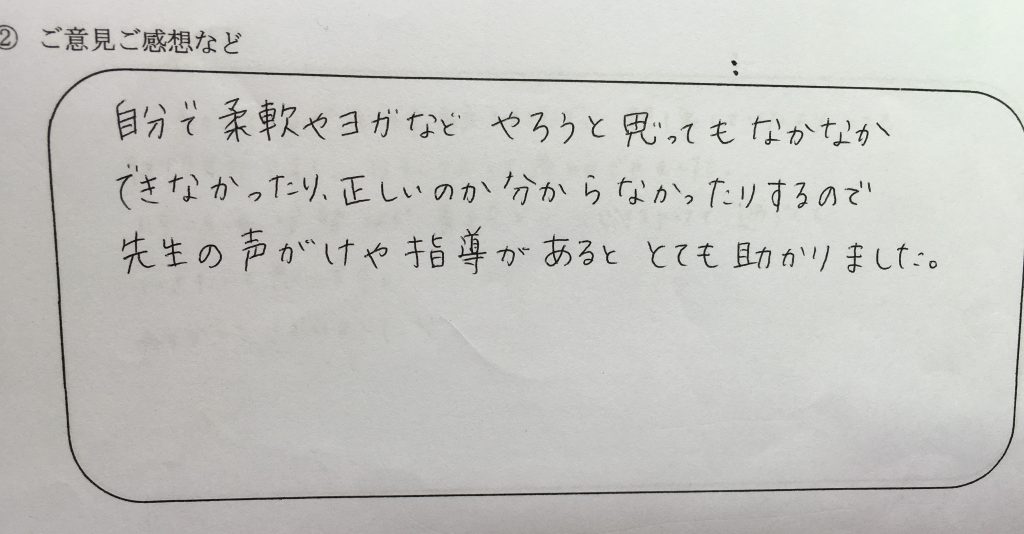 ② ご意見ご感想など
自分で柔軟やヨガなど やろうと思ってもなかなか
できなかったり、正しいのか分からなかったりするので
先生の声がけや指導があると とても助かりました。